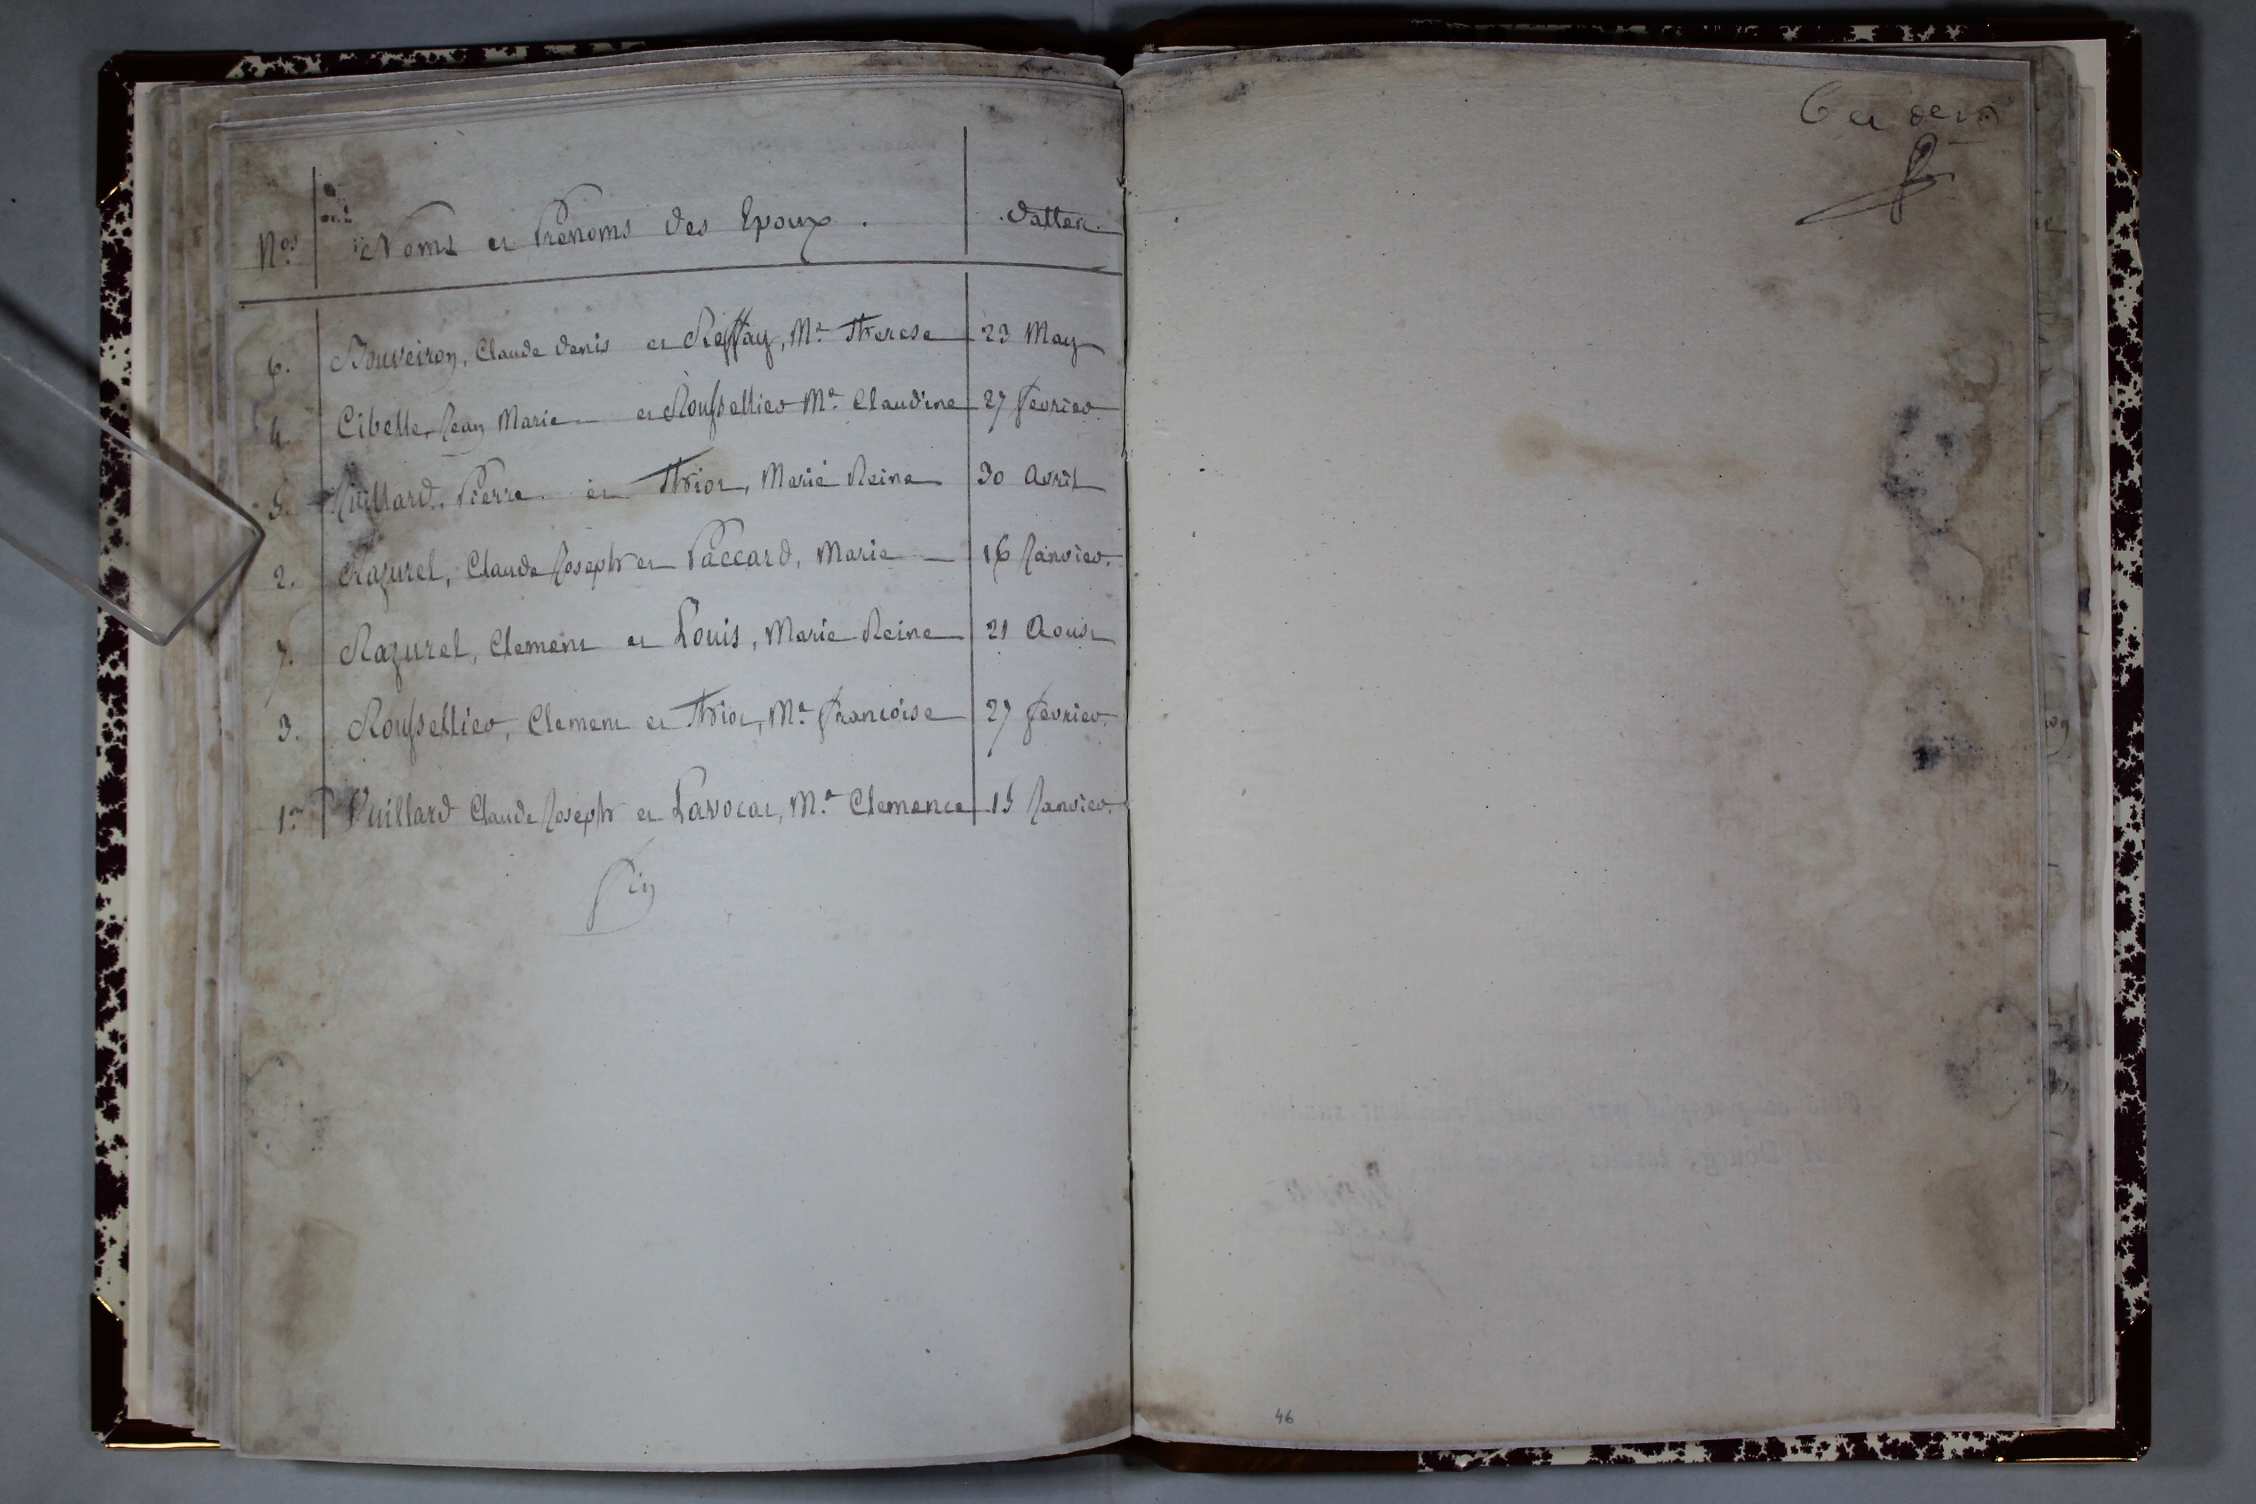 Nos Noms et Prénoms des Epoux. dattes.
6. Bouveiron, Claude denis et Reffay, Me. Therese 23 May
4. Cibelle, Jean Marie et Roussellier Me. Claudine 27 fevrier
5. Juillard, Pierre et Thior, Marie Reine 30 avril
2. Razurel, Claude Joseph et Paccard, Marie 16 Janvier.
7. Razurel, Clement et Louis, Marie Reine 21 Aoust
3. Roussellier, Clement et Thior, Me. francoise 27 fevrier.
1er Vuillard Claude Joseph et Lavocat, Me. Clemence 15 Janvier.
fin
46